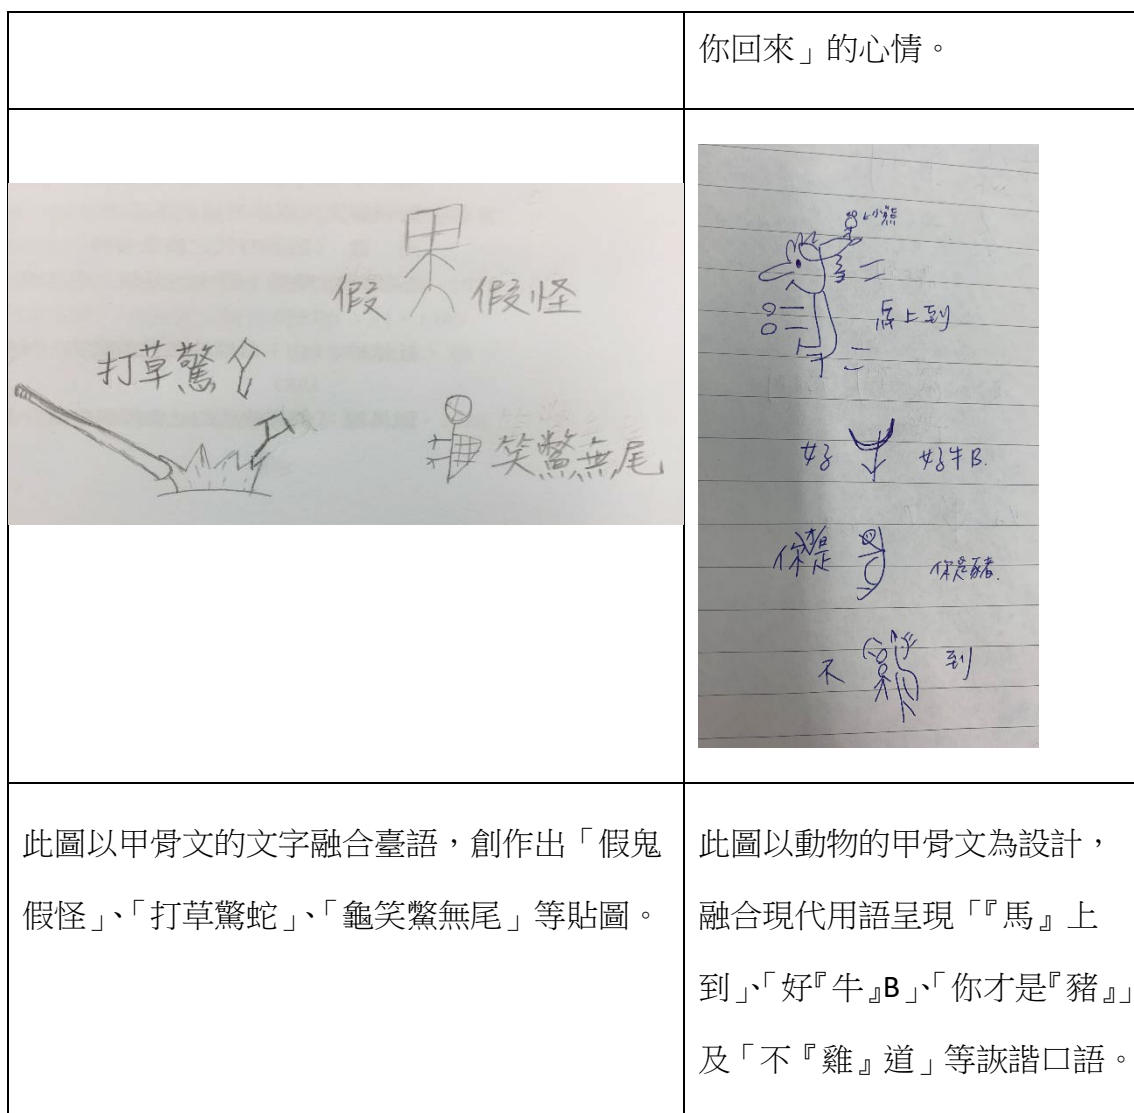 你回來」的心情。
假 假怪
打草驚
笑鱉無尾
小熊
馬上到
好 好牛B.
你是 你是豬.
不 到
此圖以甲骨文的文字融合臺語，創作出「假鬼
假怪」、「打草驚蛇」、「龜笑鱉無尾」等貼圖。
此圖以動物的甲骨文為設計，
融合現代用語呈現「『馬』上
到」、「好『牛』B」、「你才是『豬』」
及「不『雞』道」等詼諧口語。